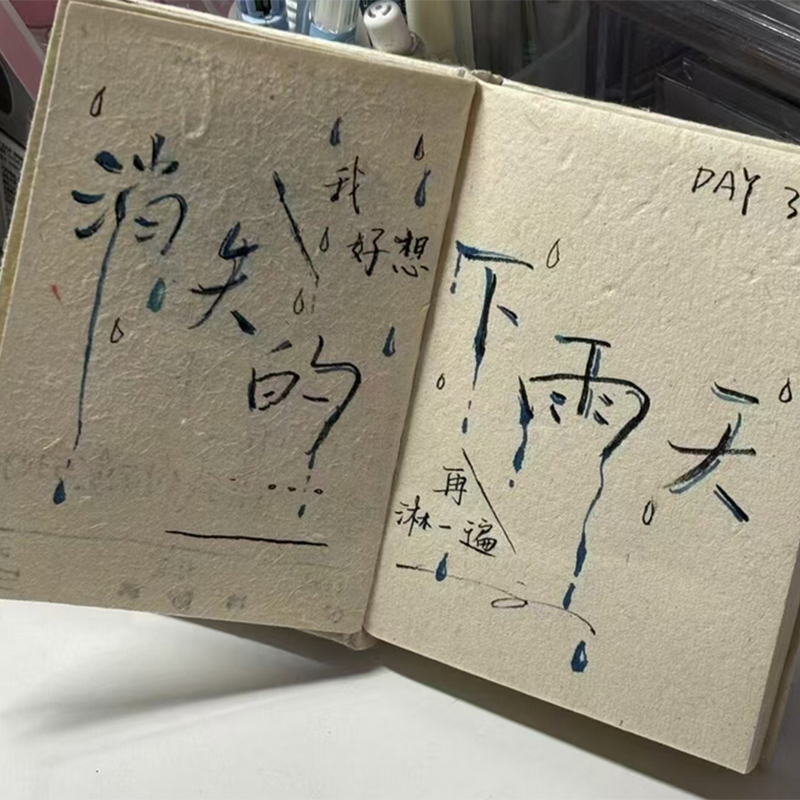 消失的
我
好想
DAY 3
下雨天
再
淋一遍